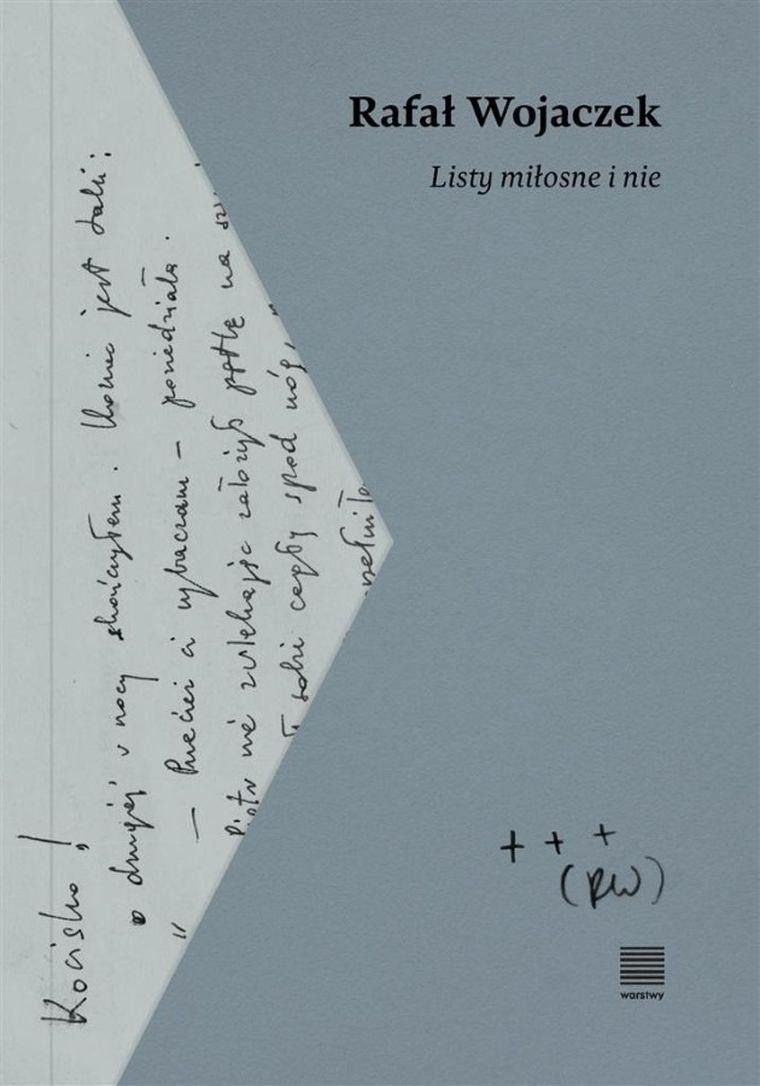 Rafał Wojaczek
Listy miłosne i nie
Kocisko!
o drugiej w nocy skończyłem. Koniec jest taki:
„ — Przecież ci wybaczam — powiedziała.
Piotr nie zwlekając założył pętlę na
sobie cegły spod nóg,
+ + +
(RW)
warstwy